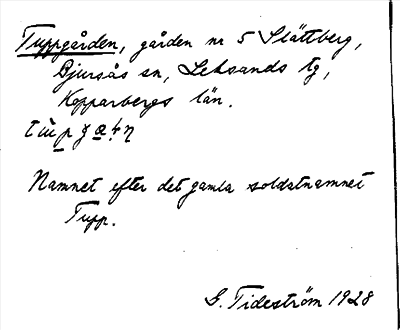 Tuppgården, gården nr 5 Slättberg,
Bjursås sn, Leksands tg,
Kopparbergs län.
Namnet efter det gamla soldatnamnet
Tupp.
G. Tideström 1928